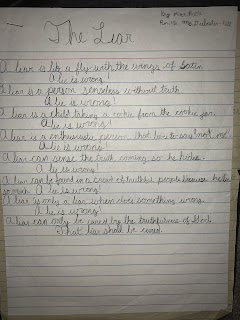 The Liar
A liar is like a fly with the wings of Satin
A lie is wrong!
A liar is a person senseless without truth
A lie is wrong!
A liar is a child taking a cookie from the cookie jar
A lie is wrong!
A liar is a enthusiastic person that loves to say "not me"
A lie is wrong!
A liar can sense the truth coming so he hides.
A lie is wrong!
A liar can be found in a crowd of truthful people because he lies
so much. A lie is wrong!
A liar is only a liar when does something wrong.
A lie is wrong!
A liar can only be cured by the truthfulness of God.
That liar shall be cured.